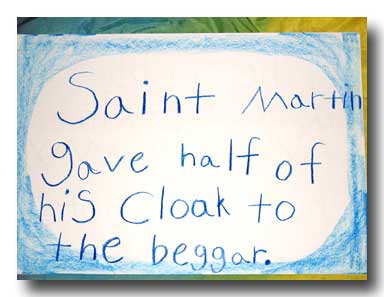 Saint Martin
gave half of
his Cloak to
the beggar.